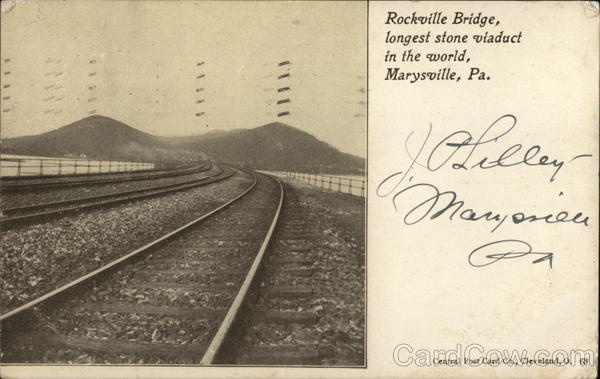 Rockville Bridge,
longest stone viaduct
in the world,
Marysville, Pa.
J. C. Lilley
Marysville
Pa
Central Post Card Co., Cleveland, O.
CardCow.com